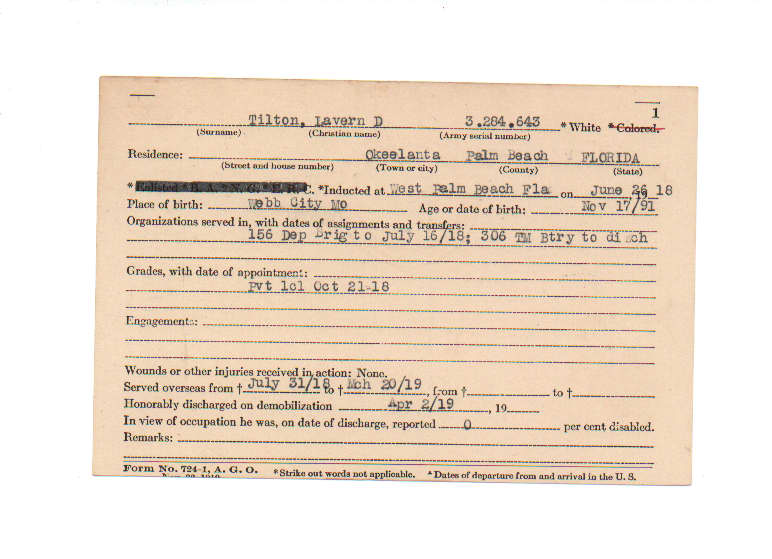 1
Tilton, Lavern D 3,284,643 * White * Colored.
(Surname) (Christian name) (Army serial number)
Residence: Okeelanta Palm Beach FLORIDA
(Street and house number) (Town or city) (County) (State)
* Enlisted * R. A. * N. G. * E. R. C. *Inducted at West Palm Beach Fla on June 26 19 18
Place of birth: Webb City Mo Age or date of birth: Nov 17/91
Organizations served in, with dates of assignments and transfers:
156 Dep Brig to July 16/18; 306 TM Btry to disch
Grades, with date of appointment:
Pvt 1cl Oct 21-18
Engagements:
Wounds or other injuries received in action: None.
Served overseas from † July 31/18 to † Mch 20/19, from † to †
Honorably discharged on demobilization Apr 2/19, 19
In view of occupation he was, on date of discharge, reported 0 per cent disabled.
Remarks:
Form No. 724-1, A. G. O. *Strike out words not applicable. † Dates of departure from and arrival in the U. S.